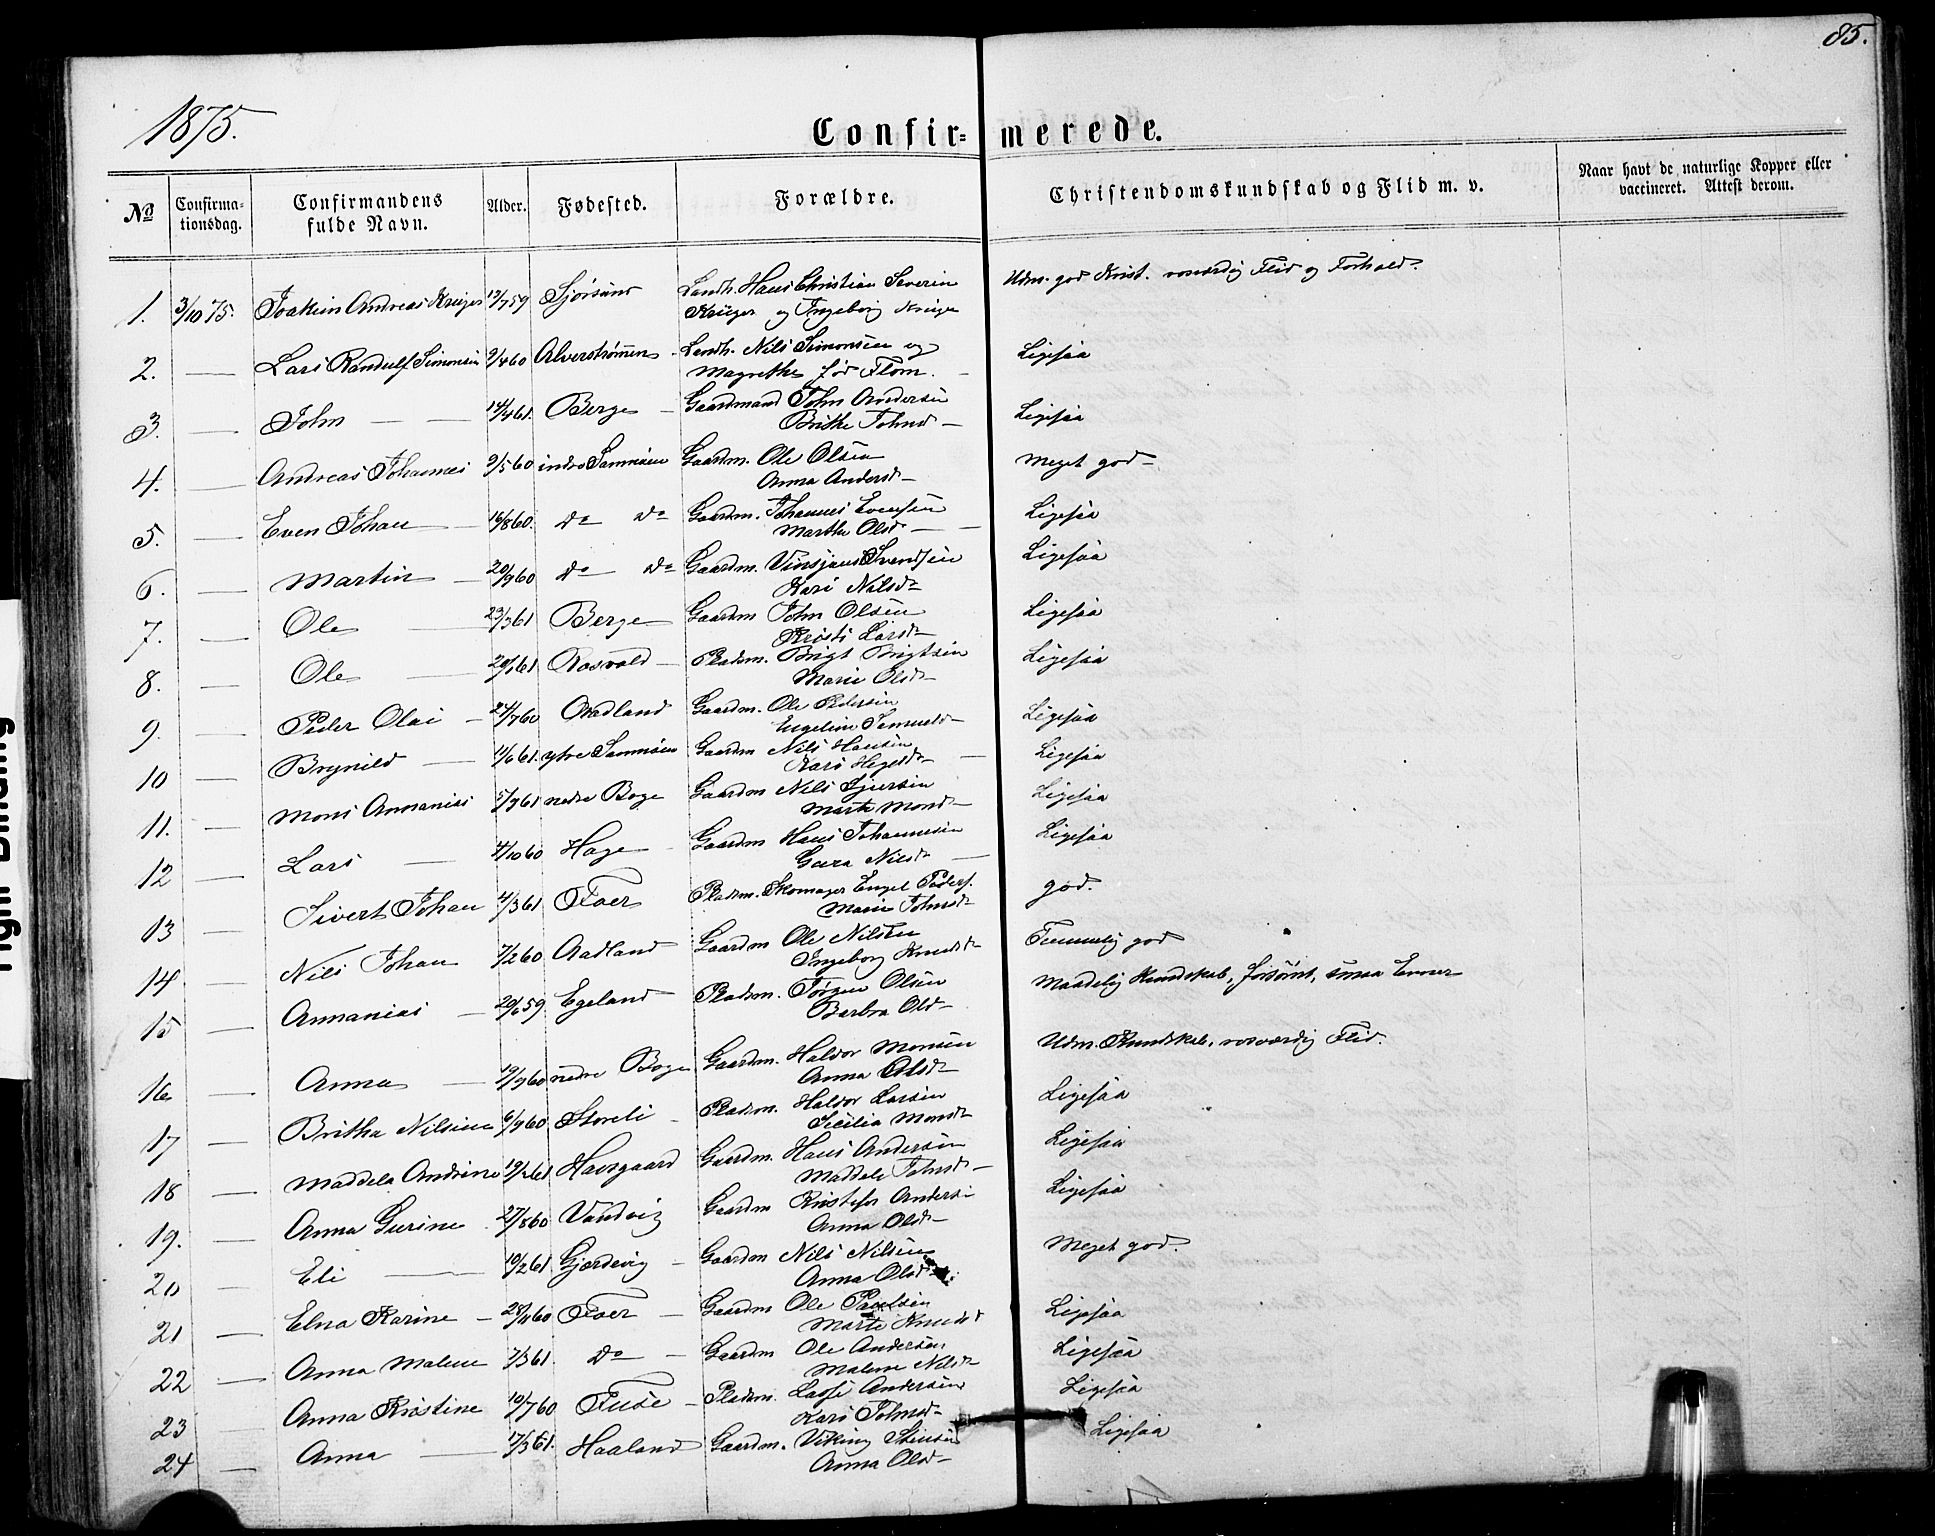 85.
1875.
Confir- merede.
No Confirmationsdag. Confirmandens fulde Navn. Alder. Fødested. Forældre. Christendomskundskab og Flid m. v. Naar havt de naturlige Kopper eller vaccineret. Attest derom.
1. 3/10 75. Joakim Andreas Krüger 13/7 59 Landh. Hans Christian Severin Udm. god Krist. rosværdig Flid og Forhold.
Krüger og Ingeborg Krüger
2. — Lars Randulf Simonsen 9/4 60 Alverstrømmen Landh. Nils Simonsen og Ligesaa
Magrethe fød Flom.
3. — John — 14/4 61. Berge — Gaardmand John Andersen Ligesaa
Brithe Johnsd —
4. — Andreas Johannes 9/5 60 indre Sammøen Gaardm. Ole Olsen Meget god —
Anna Andersd —
5. — Even Johan — 16/8 60. do do Gaardm. Johannes Evensen Ligesaa
Marthe Olsd —
6. — Martin — 20/9 60 do do Gaardm. Svendsen Ligesaa
Kari Nilsd
7. — Ole — 23/3 61 Berge Gaardm John Olsen Ligesaa
Kristi Larsd
8. — Ole — 20/1 61. Rosvold — Pladsm. Brigt Brigtsen Ligesaa
Marie Olsd
9. — Peder Olai — 24/7 60 Aadland Gaardm. Ole Pedersen Ligesaa
Engeline Samuelsd —
10 — Brynild — 11/6 61. ytre Sammøen Gaardm Nils Hansen Ligesaa
Kari
11. — Mons Annanias 5/9 61 nedre Boge Gaardm Nils Ligesaa
Marte Monsd —
12 — Lars — 4/10 60 Hage Gaardm Hans Johannesen Ligesaa
Nilsd
13 — Sivert Johan 11/3 61. Foer Pladsm. Skomager Engel Peders. god.
Marie Johnsd
14 — Nils Johan 7/2 60 Aadland Gaardm Ole Nilsen Temmelig god
Ingeborg Knudsd
15 — Annanias — 20/6 59. Egeland Pladsm. Jørgen Olsen Maadelig Kundskab, forsømt, smaa Evner
Barbra Olsd —
16 — Anna — 19/9 60 nedre Boge Gaardm. Haldor Monsen Udm. Kundskab. rosværdig Flid.
Anna Olsd
17 — Britha Nilsine 6/9 60 Storeli — Pladsm. Haldor Larsen Ligesaa
Secilia Monsd
18 — Maddela Andrine 19/2 61 Havsgaard Gaardm. Hans Andersen Ligesaa
Maddele Johnsd —
19. — Anna Gurine 27/8 60 Vandvig Gaardm Kristofer Andersen Ligesaa
Anna Olsd —
20 — Eli — 10/2 61 Gjerdevig — Gaardm Nils Nilsen Meget god.
Anna Olsd
21 — Elna Karine — 28/11 60 Foer — Gaardm Ole Paulsen Ligesaa
Marte Knudsd
22 — Anna Malene 7/3 61. do — Gaardm Ole Andersen Ligesaa
Malene Nilsd
23 — Anna Kristine 10/7 60 Fuse — Pladsm. Lasse Andersen Ligesaa
Kari Johnsd —
24 — Anna — 17/3 61. Haaland Gaardm. Viking Ligesaa
Anna Olsd —